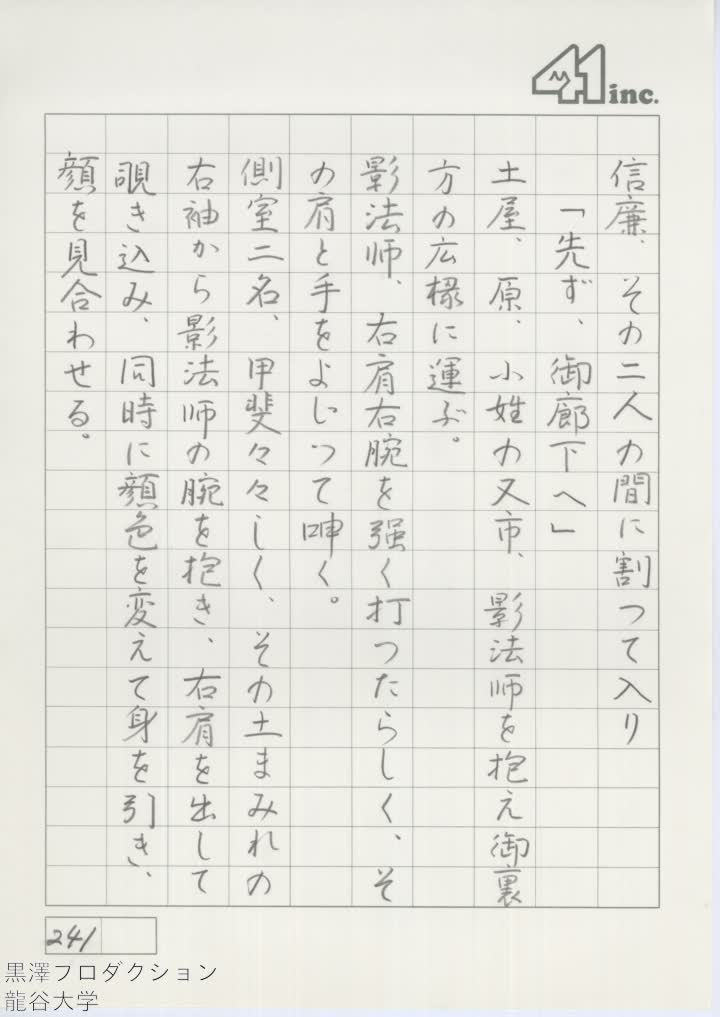 41 inc.
信廉、その二人の間に割つて入り
「先ず、御廊下へ」
土屋、原、小姓の又市、影法師を抱え御裏
方の広椽に運ぶ。
影法師、右肩右腕を強く打つたらしく、そ
の肩と手をよじつて呻く。
側室二名、甲斐々々しく、その土まみれの
右袖から影法師の腕を抱き、右肩を出して
覗き込み、同時に顔色を変えて身を引き、
顔を見合わせる。
241
黒澤プロダクション
龍谷大学